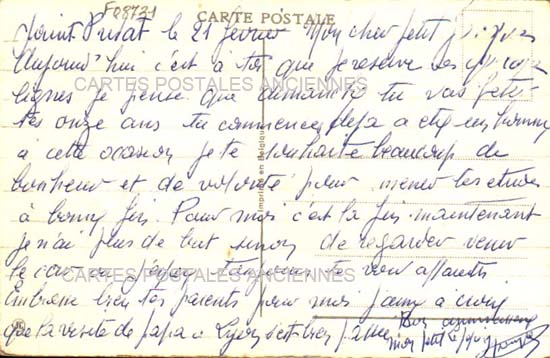 F08731
CARTE POSTALE
Saint Privat le 21 février Mon cher petit
Aujourd'hui c'est à toi que je réserve ces
CARTES POSTALES ANCIENNES
lignes je pense que dimanche tu vas fêter
tes onze ans tu commences déjà a etre un homme
a cette occasion je te souhaite beaucoup de
bonheur et de volonté pour mener tes études
à bonne fin. Pour moi c'est la fin maintenant
je n'ai plus de but sinon de regarder venir
le car
CARTES POSTALES ANCIENNES
toujours te voir
Embrasse bien tes parents pour moi j'aime a croire
que la visite de papa a Lyon s'est bien passée
Bon anniversaire
mon petit
Imprimé en Belgique